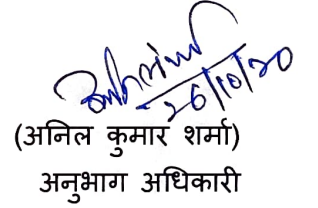 26/10/20
(अनिल कुमार शर्मा)
अनुभाग अधिकारी